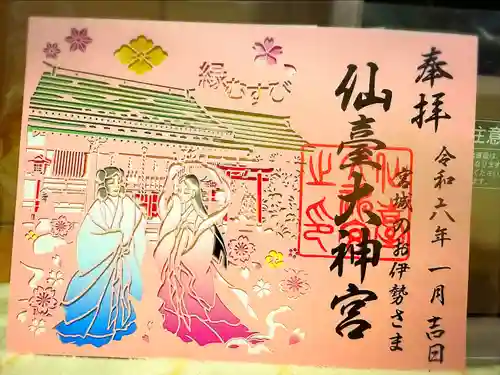 奉拝
令和六年 一月吉日
仙臺大神宮
宮城のお伊勢さま
縁むすび
注意